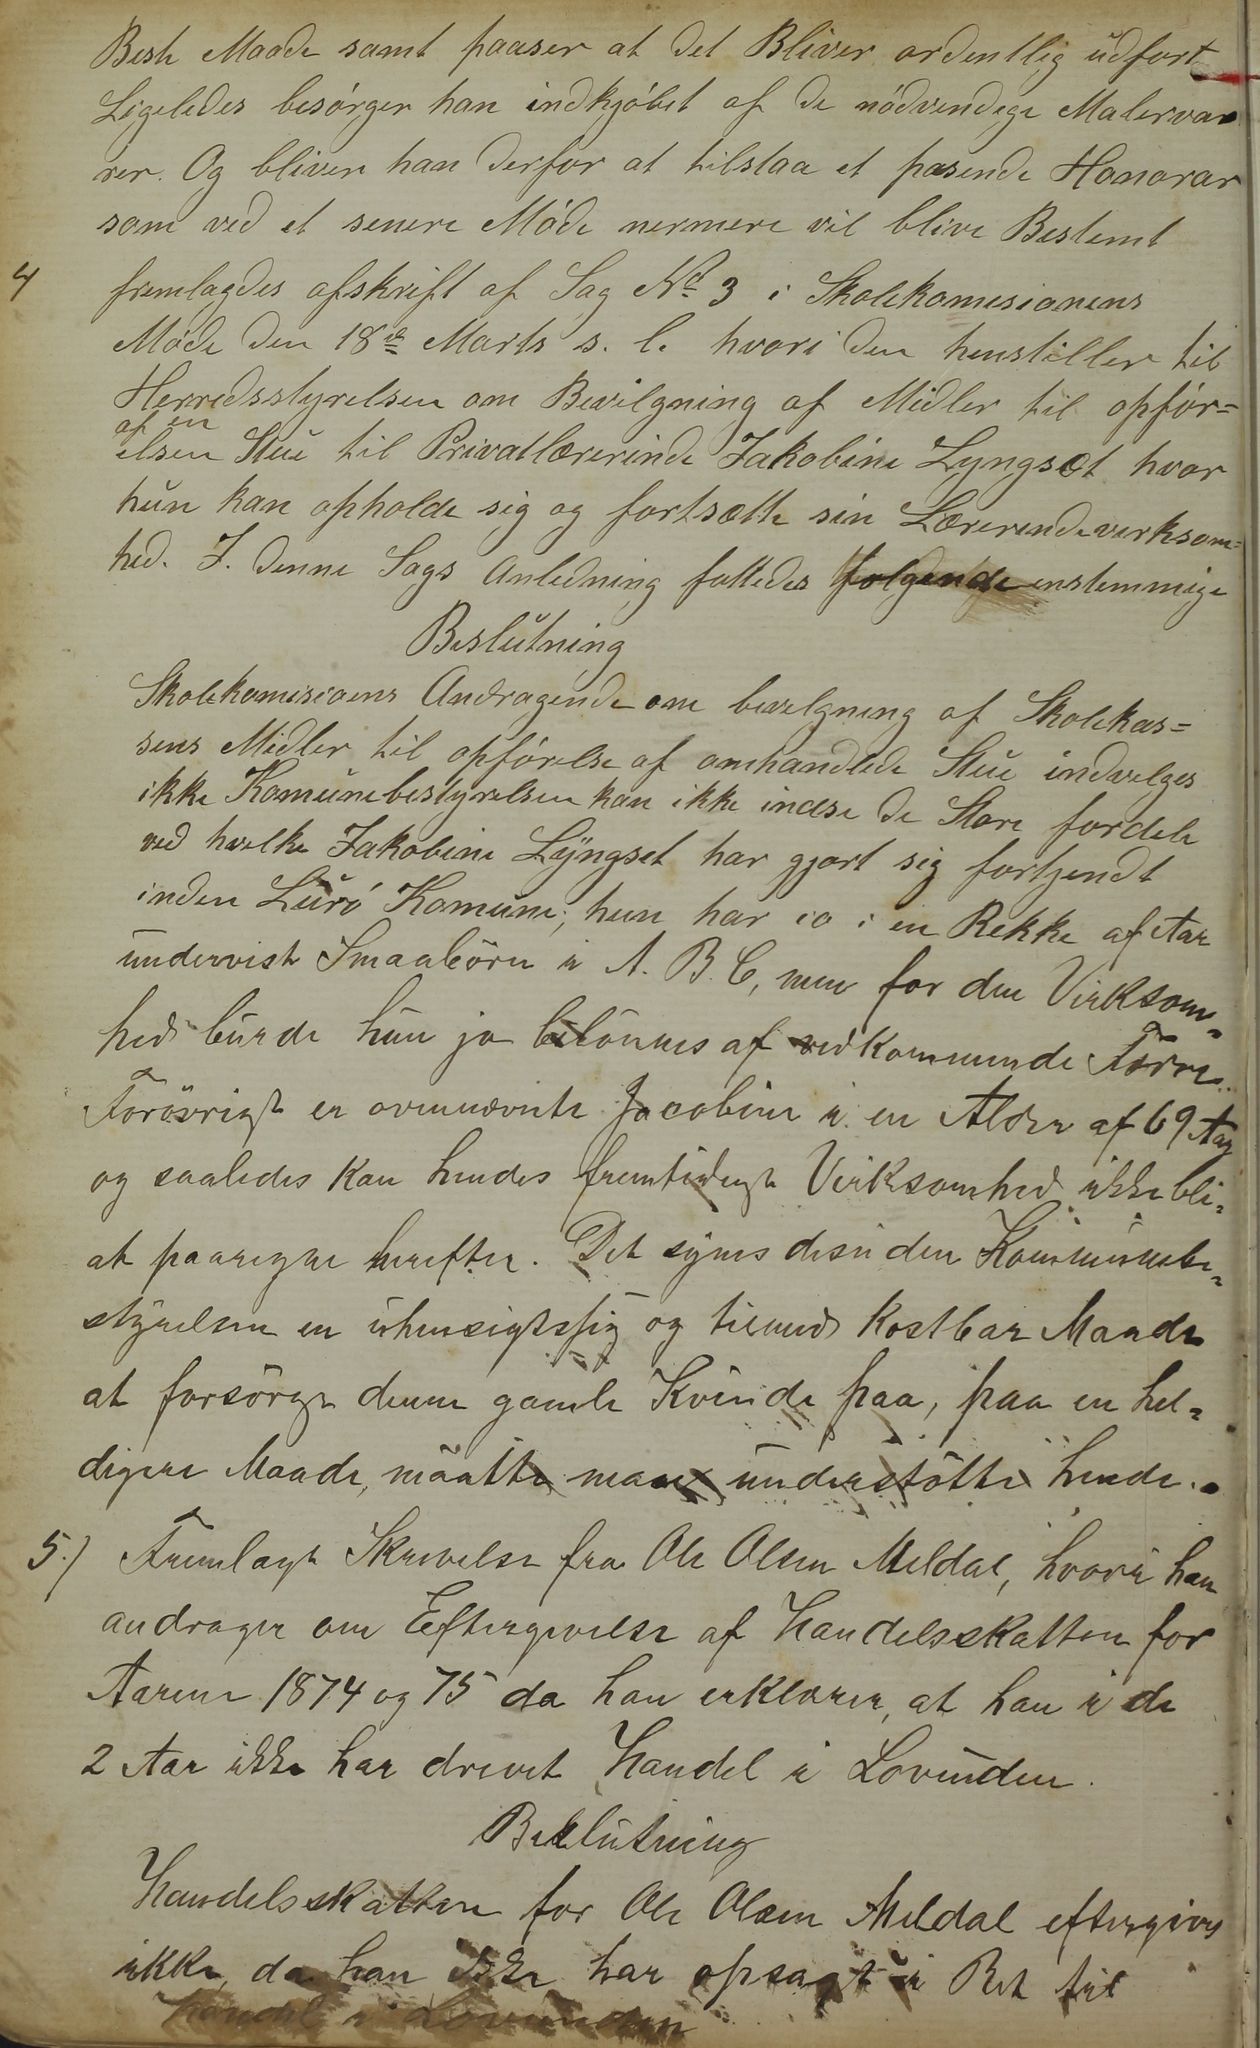 Beste Maade samt paaser at det Bliver ordentlig udført
Ligeledes besörger han indkjöbet af de nödvendige Malervar
rer. Og bliver han derfor at tilstaa et pasende Honorar
som ved et senere Möde nermere vil blive Bestemt
4 fremlagdes afskrift af Sag No 3 i Skolekomisionens
Möde den 18de Marts s. l. hvori den henstiller til
Herredsstyrelsen om Bevilgning af Midler til opför=
af en
elsen Stue til Privatlærerinde Jakobine Lyngsæt hvor
hun kan opholde sig og fortsætte sin Lærerindevirksom=
hed. I. denne Sags Anledning fattedes følgende enstemmige
Beslutning
Skolekomisioens Andragende om bevelgning af Skolekas=
sens Midler til opförelse af omhandlede Stue indvelges
ikke Komunebestyrelsen kan ikke indse de Store fordele
ved hvelke Jakobine Lyngset har gjort sig fortjendt
inden Lurö Komune; hun har jo i en Rekke af Aar
undervist Smaabörn i A. B. C, men for den Virksom=
hed burde hun jo belönnes af vedkommende Færre.
Forövrigt er ovennævnte Jacobine i en Alder af 69 Aar
og saaledes kan hendes fremtidige Virksomhed ikke bli=
at paaregne herefter. Det synes desuden Kommunebe=
styrelsen en uhensigtssig og tilmed kostbar Maade
at forsörge denne gamle Kvinde paa, paa en hel=
digere Maade, maatte man understötte hende.
5.) Fremlagt Skrivelse fra Ole Olsen Meldal, hvori han
andrager om Eftergivelse af Handelsskatten for
Aarene 1874 og 75 da han erklærer, at han i de
2 Aar ikke har drevet Handel i Lovunden.
Beslutning
Handelsskatten for Ole Olsen Meldal eftergives
ikke, da han ikke har opsagt i Ret til
Handel i Lovunden